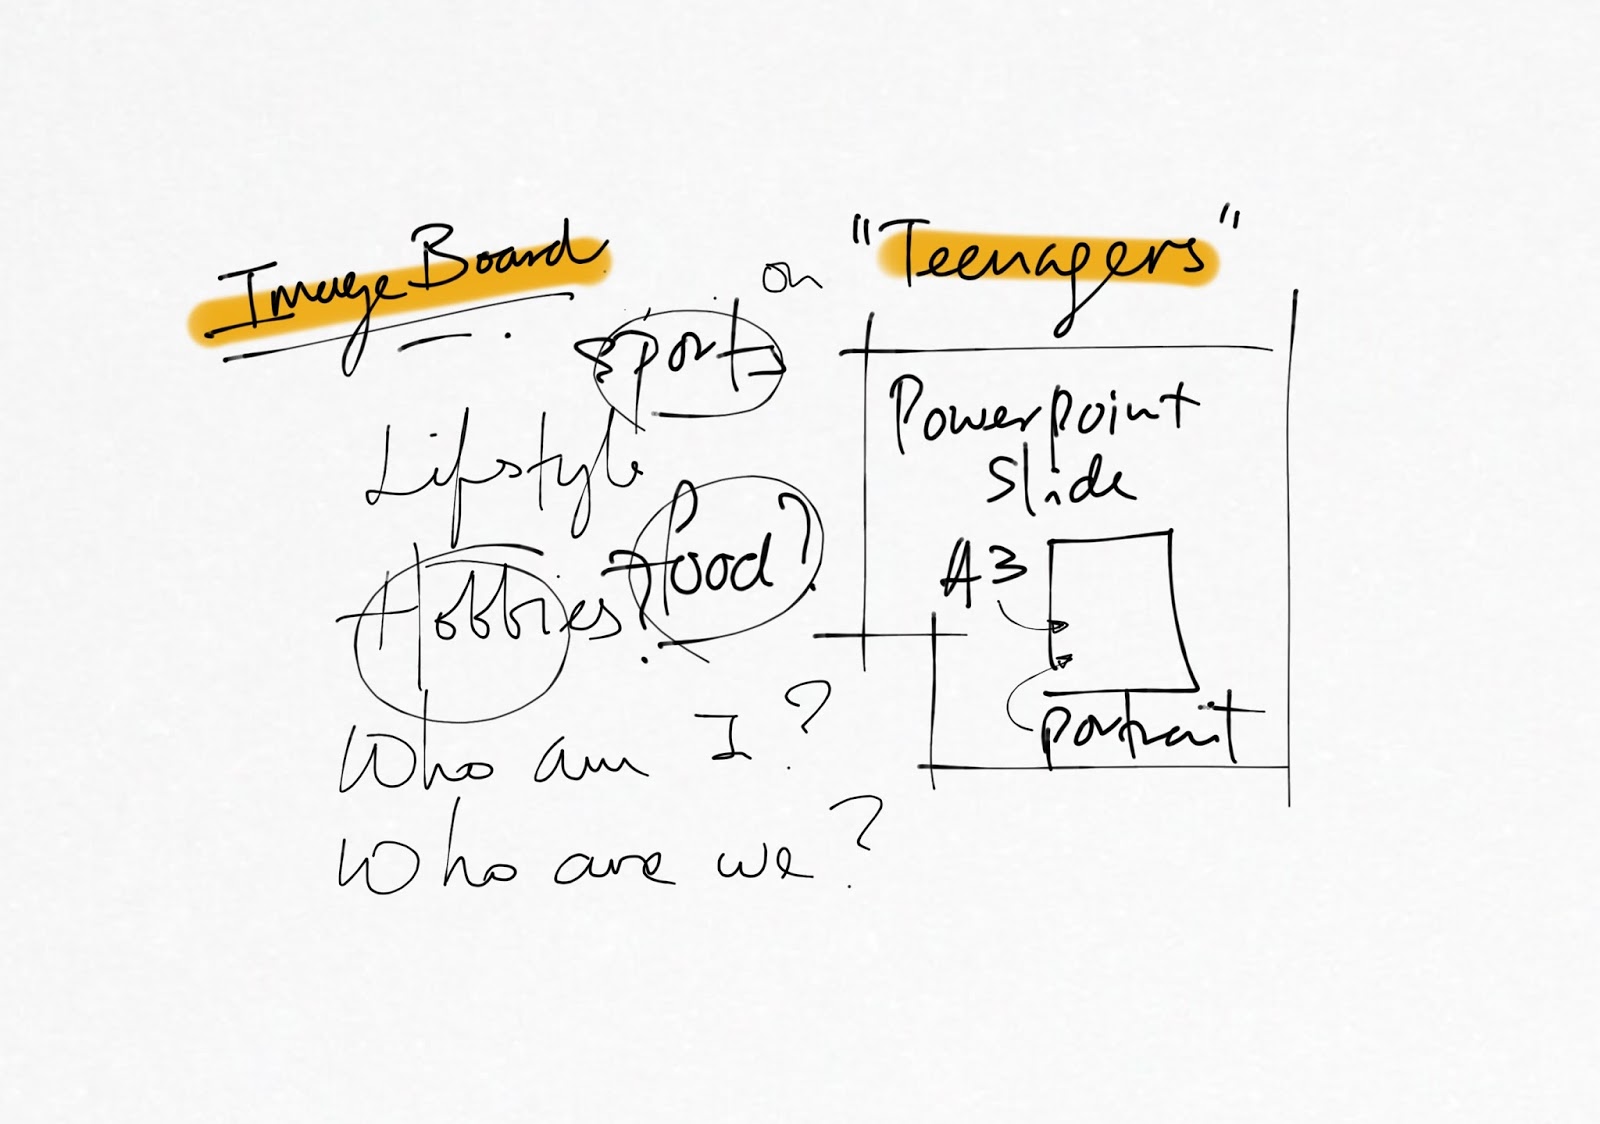 Image Board on "Teenagers"
Sports
Lifestyle
food?
Hobbies?
Who am I?
Who are we?
Powerpoint
Slide
A3
portrait